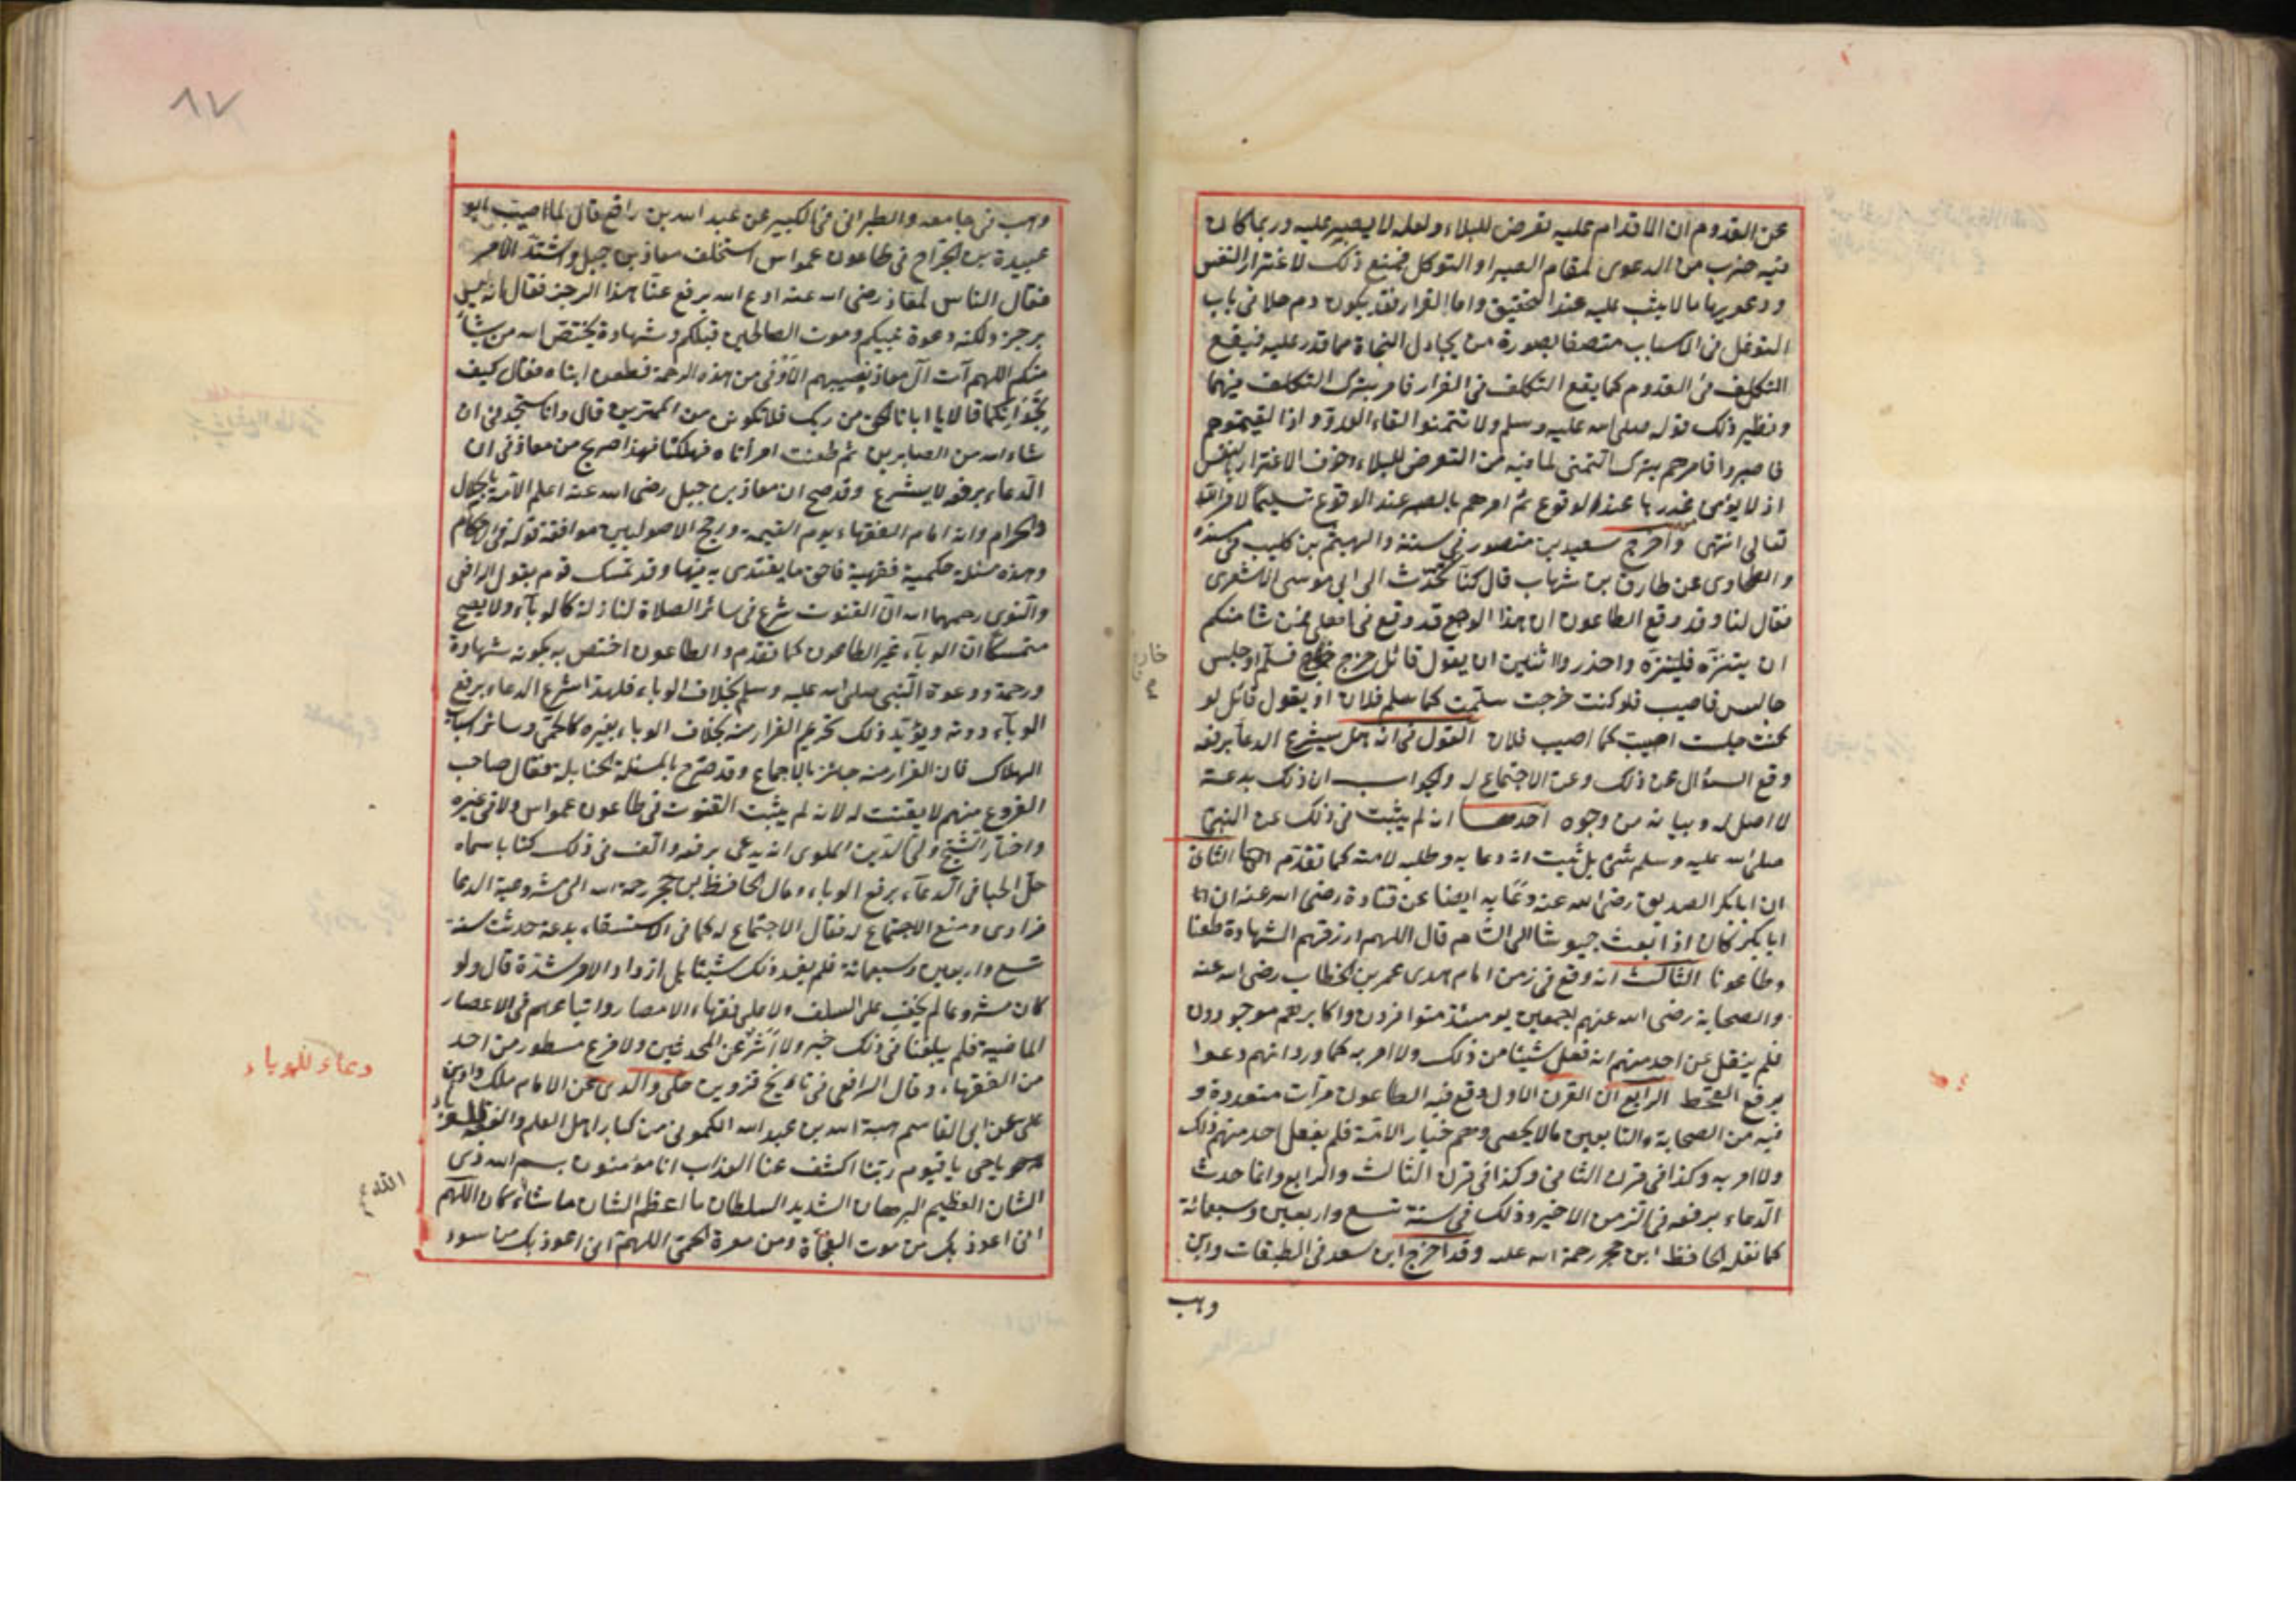 عن القدوم ان الاقدام عليه تعرض للبلاء ولعله لا يصبر عليه وربما كان
فيه ضرب من الدعوى لمقام الصبر او التوكل فمنع ذلك لاغترار النفس
ودعويها ما لا يثبت عليه عند التحقيق واما الفرار فقد يكون دخلا في باب
التوغل في الاسباب متصفا بصورة من يحاول النجاة مما قدر عليه فيقع
التكلف في القدوم كما يقع التكلف في الفرار فامر بترك التكلف فيهما
ونظير ذلك قوله صلى الله عليه وسلم ولا تتمنوا لقاء العدو واذا لقيتموهم
فاصبروا فامرهم بترك التمنى لما فيه من التعرض للبلاء وخوف الاغترار بالنفس
اذ لا يؤمن غدرها عند الوقوع ثم امرهم بالصبر عند الوقوع تسليما لامر الله
تعالى انتهى واخرج سعيد بن منصور في سننه والهيثم بن كليب في مسنده
والطحاوى عن طارق بن شهاب قال كنا نتحدث الى ابي موسى الاشعرى
فقال لنا وقد وقع الطاعون ان هذا الوجع قد وقع في اهلى فمن شا منكم
ان يتنزه فليتنزه واحذروا اثنتين ان يقول قائل خرج خارج فسلم او جلس
خارج
جالس فاصيب فلو كنت خرجت سلمت كما سلم فلان او يقول قائل لو
كنت جلست اصبت كما اصيب فلان القول في انه هل يشرع الدعا برفعه
وقع السؤال عن ذلك وعن الاجتماع له والجواب ان ذلك بدعة
لا اصل له وبيانه من وجوه احدها انه لم يثبت في ذلك عن النبي
صلى الله عليه وسلم شئ بل ثبت انه دعا به وطلبه لامته كما تقدم الثاني
ان ابا بكر الصديق رضى الله عنه دعا به ايضا عن قتادة رضى الله عنه ان
ابا بكر كان اذا بعث جيوشا الى الشام قال اللهم ارزقهم الشهادة طعنا
وطاعونا الثالث انه وقع في زمن امام الهدى عمر بن الخطاب رضى الله عنه
والصحابة رضى الله عنهم اجمعين يومئذ متوافرون واكابرهم موجودون
فلم ينقل عن احد منهم انه فعل شيئا من ذلك ولا امر به كما ورد انهم دعوا
برفع القحط الرابع ان القرن الاول وقع فيه الطاعون مرات متعددة و
فيه من الصحابة والتابعين ما لا يحصى وهم خيار الامة فلم يفعل احد منهم ذلك
ولا امر به وكذا في قرن الثاني وكذا في قرن الثالث والرابع وانما حدث
الدعاء برفعه في الزمن الاخير وذلك في سنة تسع واربعين وسبعمائة
كما نقله الحافظ ابن حجر رحمة الله عليه وقد اخرج ابن سعد في الطبقات وابن
وهب
٨٧
وهب في جامعه والطبراني في الكبير عن عبد الله بن رافع قال لما اصيب ابو
عبيدة بن الجراح في طاعون عمواس استخلف معاذ بن جبل واشتد الامر
فقال الناس لمعاذ رضى الله عنه ادع الله يرفع عنا هذا الرجز فقال انه ليس
برجز ولكنه دعوة نبيكم وموت الصالحين قبلكم وشهادة يختص الله من يشاء
منكم اللهم آت آل معاذ نصيبهم الاوفى من هذه الرحمة فطعن ابناه فقال كيف
تجدانكما قالا يا ابانا الحق من ربك فلا تكونن من الممترين قال وانا ستجدني ان
شاء الله من الصابرين ثم طعنت امرأتاه فهلكتا فهذا صريح من معاذ في ان
الدعاء برفعه لا يشرع وقد صح ان معاذ بن جبل رضى الله عنه اعلم الامة بالحلال
والحرام وانه امام الفقهاء يوم القيمة ورجح الاصوليين موافقة قوله في الاحكام
وهذه مسئلة حكمية فقهية فاحق ما يقتدى به فيها وقد تمسك قوم بقول الرافعى
والنووى رحمهما الله ان القنوت شرع في سائر الصلاة لنازلة كالوباء ولا يصح
متمسكا ان الوباء غير الطاعون كما تقدم والطاعون اختص به بكونه شهادة
ورحمة ودعوة النبي صلى الله عليه وسلم بخلاف الوباء فلهذا شرع الدعاء برفع
الوباء دونه ويؤيد ذلك تحريم الفرار منه بخلاف الوباء بغيره كالحمى وسائر اسباب
الهلاك فان الفرار منه جائز بالاجماع وقد صرح بالمسئلة الحنابلة فقال صاحب
الفروع منهم لا يقنت له لانه لم يثبت القنوت في طاعون عمواس ولا في غيره
واختار الشيخ ولي الدين الملوى انه يدعى برفعه والف في ذلك كتابا سماه
حل الحبا في الدعاء برفع الوباء ومال الحافظ ابن حجر رحمه الله الى مشروعية الدعا
فرادى ومنع الاجتماع له فقال الاجتماع له كما في الاستسقاء بدعة حدثت سنة
تسع واربعين وسبعمائة فلم يفد ذلك شيئا بل ازداد الامر شدة قال ولو
كان مشروعا لم يخف على السلف ولا على فقهاء الامصار واتباعهم في الاعصار
الماضية فلم يبلغنا في ذلك خبر ولا اثر عن المحدثين ولا فرع مسطور من احد
دعاء للوباء
من الفقهاء وقال الرافعى في تاريخ قزوين حكى والدى عن الامام ملكداد بن
على عن ابى القاسم هبة الله بن عبد الله الكمونى من كبار اهل العلم
يا حى يا قيوم ربنا اكشف عنا العذاب انا مؤمنون بسم الله ذى
الشان العظيم البرهان الشديد السلطان ما اعظم الشان ما شاء كان اللهم
الله
انى اعوذ بك من موت الفجأة ومن معرة الحمى اللهم انى اعوذ بك من سوء